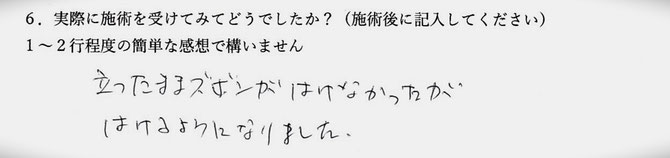 6．実際に施術を受けてみてどうでしたか？（施術後に記入してください）
1～2行程度の簡単な感想で構いません
立ったままズボンがはけなかったが
はけるようになりました．